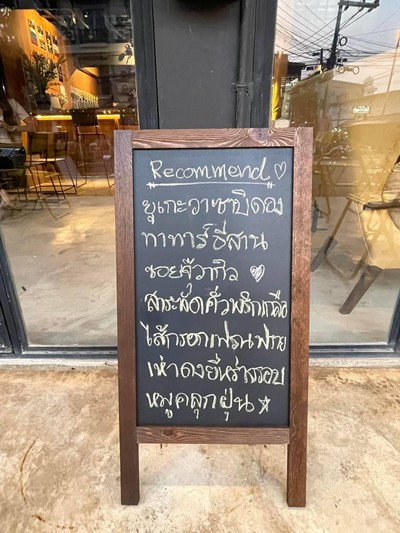 Recommend ♡
ทูเกะวาซาบิดอง
ทาทาร์อีสาน
ซอยจุ๊วากิว ♡
สาระผัดคั่วพริกเกลือ
ไส้กรอกเฟรนฟราย
เห่าดงยี่หร่ากรอบ
หมูคลุกฝุ่น ☆